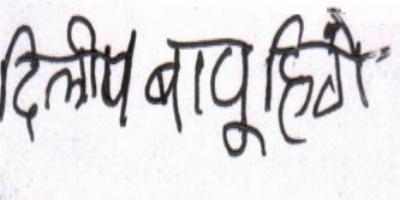 दिलीप बापू हिवे